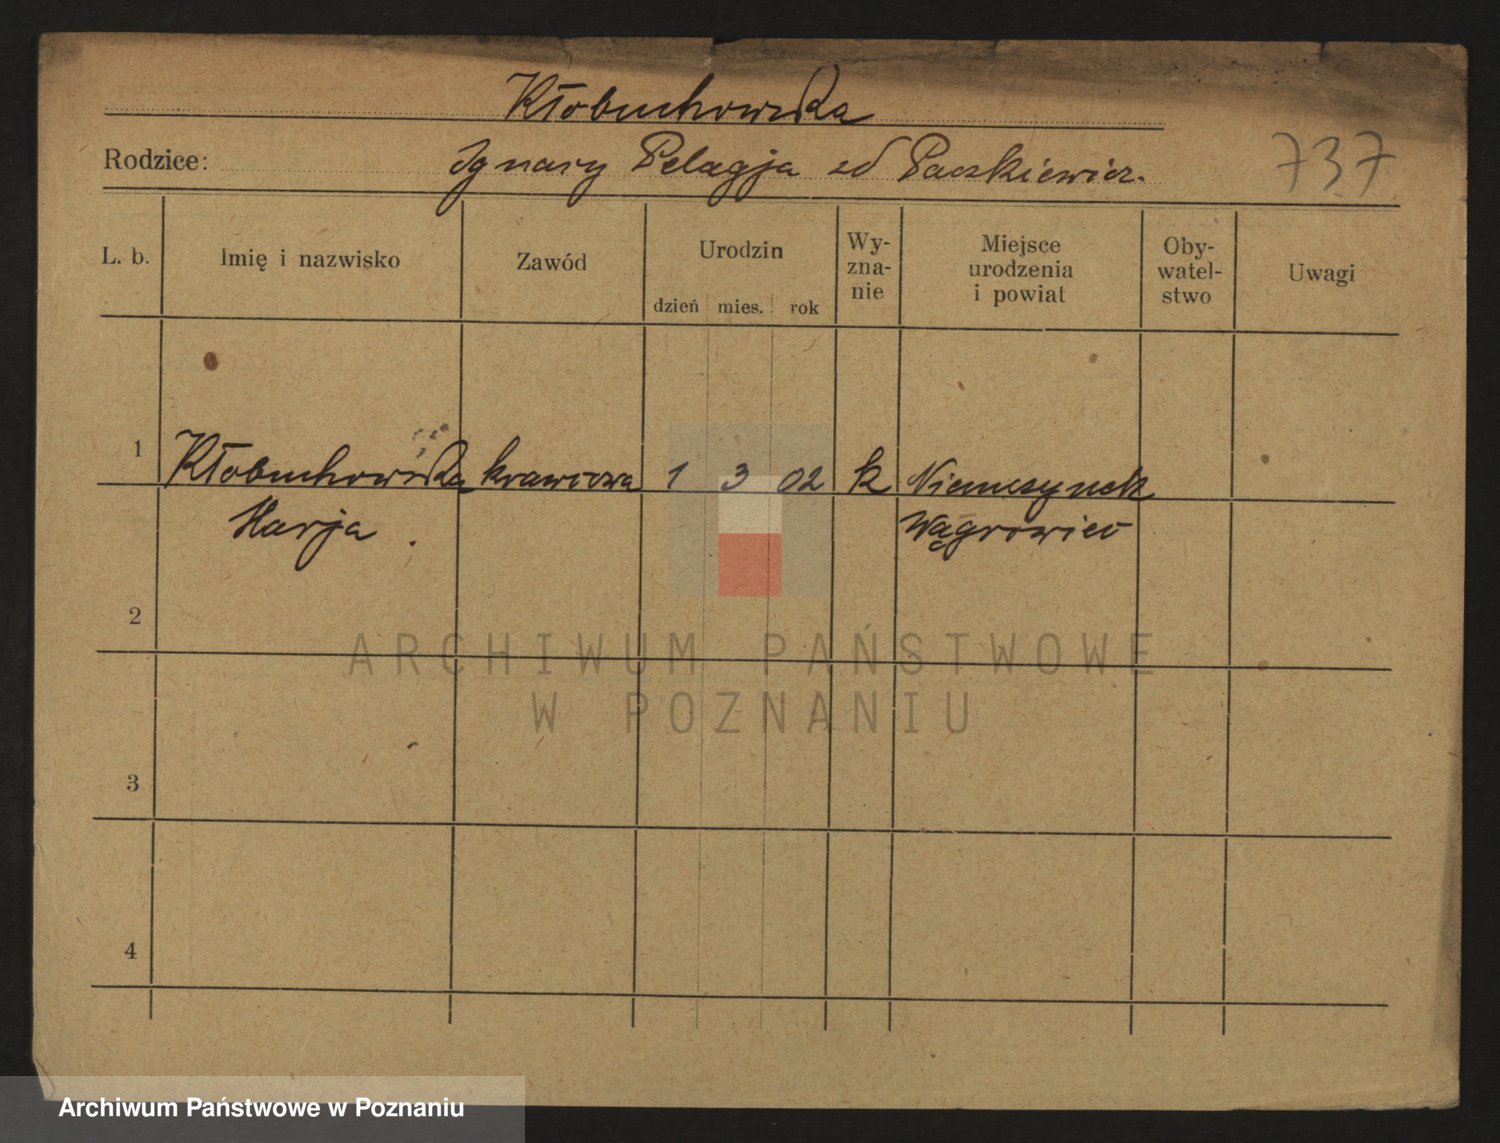 Kłobuchowska
Rodzice: Ignacy Pelagja zd Paczkiewicz.
737
L. b. Imię i nazwisko Zawód Urodzin Wy-zna-nie Miejsce urodzenia i powiat Oby-watel-stwo Uwagi
dzień mies. rok
1 Kłobuchowska krawcowa 1 3 02 k Niemczynek
Marja Wągrowiec
2
ARCHIWUM PAŃSTWOWE
W POZNANIU
3
4
Archiwum Państwowe w Poznaniu